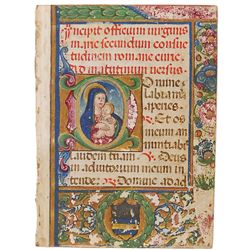 Incipit officium virginis
marie secundum consue
tudinem romane curie.
ad matutinum versus.
Domine
labia me
a aperies.
Et os
meum an
nuntiabit
laudem tuam. Deus
in adiutorium meum in
tende. Domine ad ad